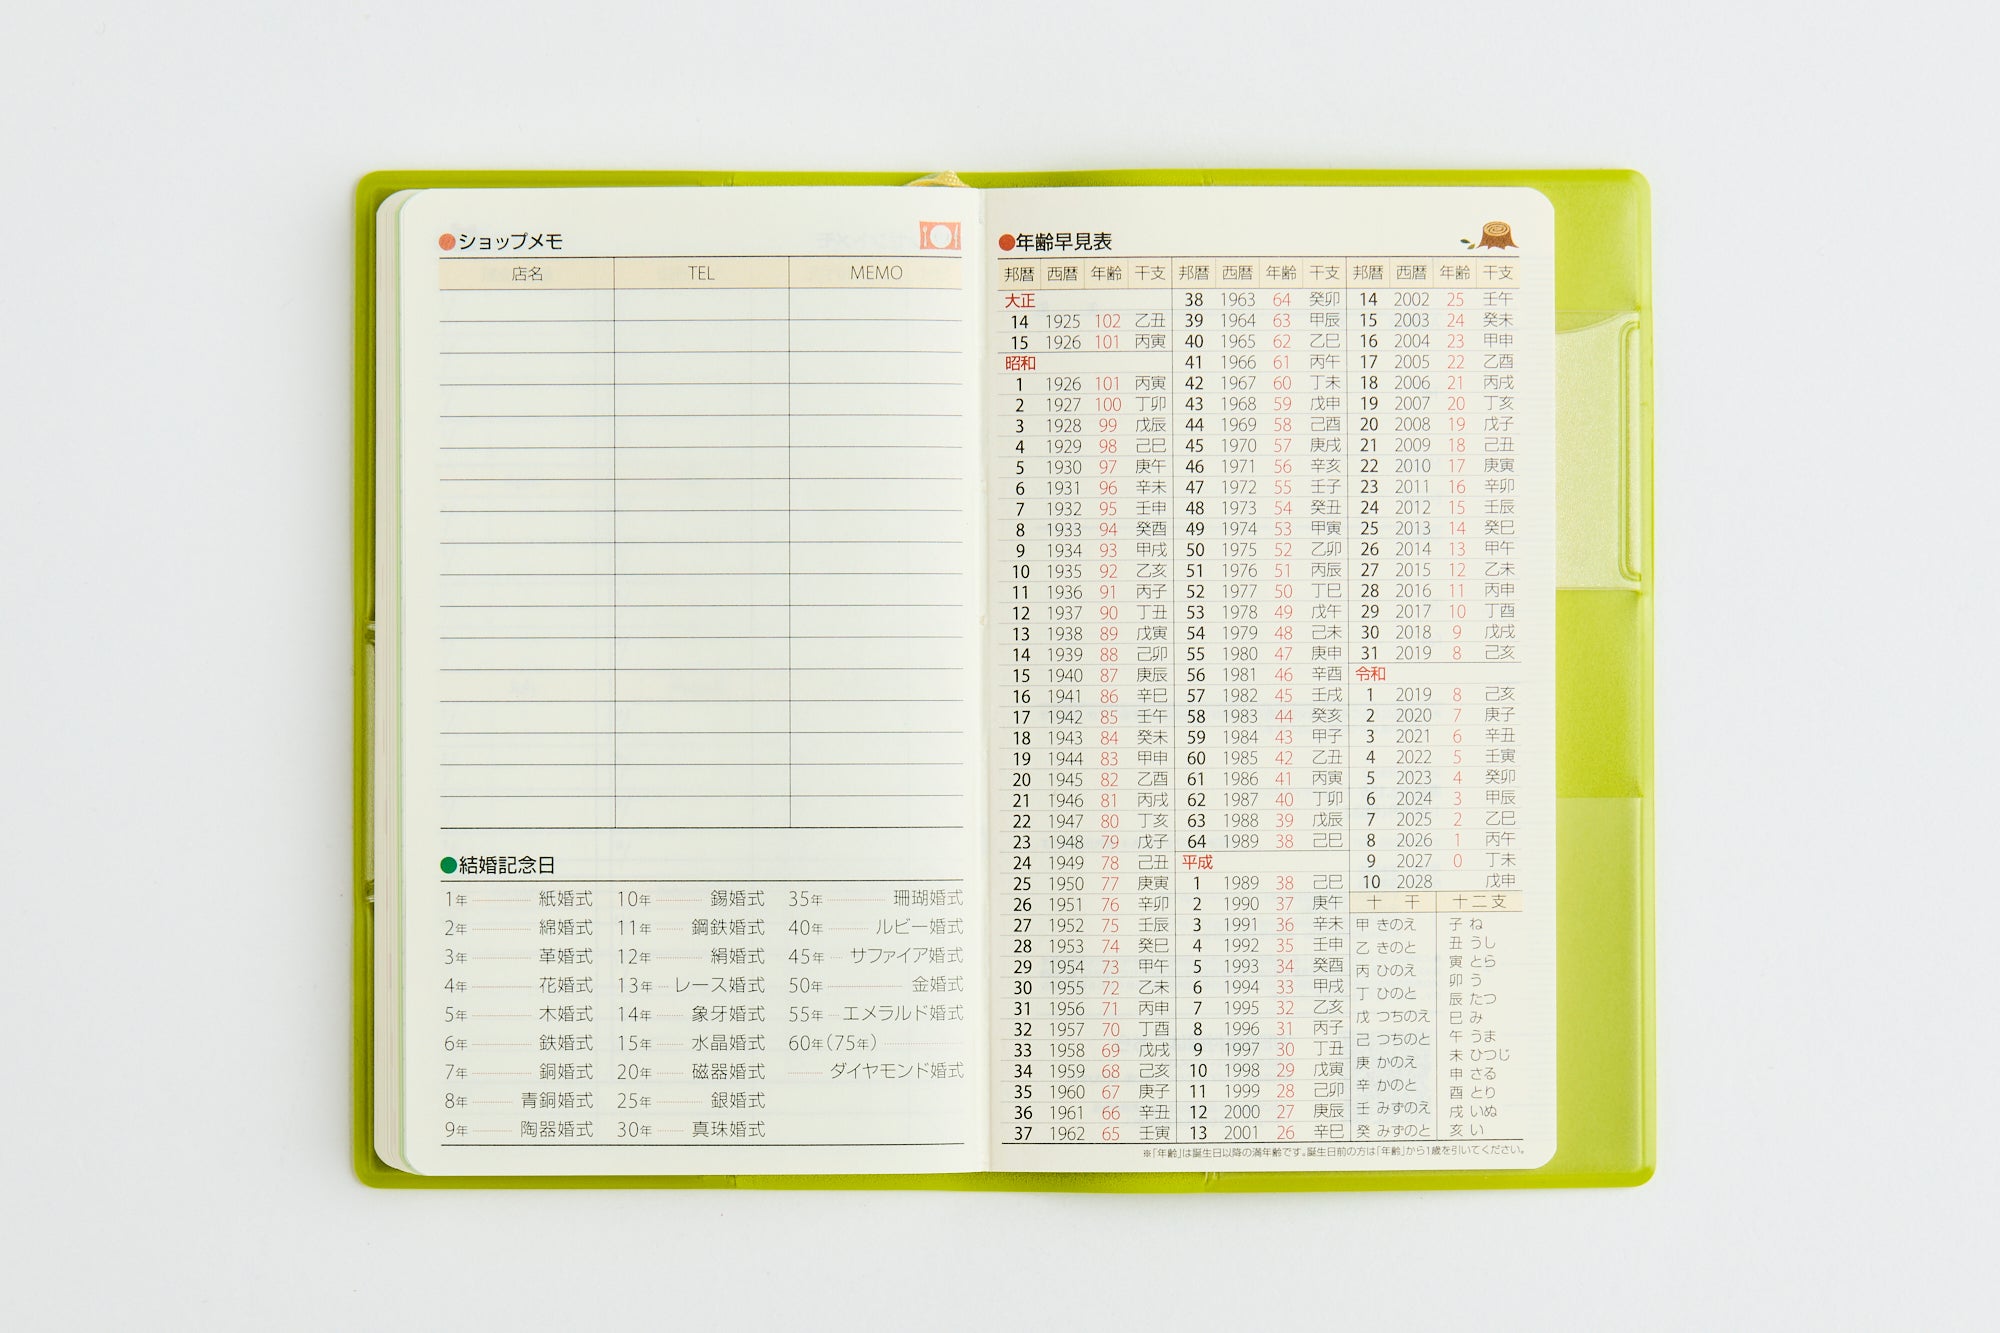 ●ショップメモ
店名 TEL MEMO
●結婚記念日
1年 紙婚式 10年 錫婚式 35年 珊瑚婚式
2年 綿婚式 11年 鋼鉄婚式 40年 ルビー婚式
3年 革婚式 12年 絹婚式 45年 サファイア婚式
4年 花婚式 13年 レース婚式 50年 金婚式
5年 木婚式 14年 象牙婚式 55年 エメラルド婚式
6年 鉄婚式 15年 水晶婚式 60年(75年)
7年 銅婚式 20年 磁器婚式 ダイヤモンド婚式
8年 青銅婚式 25年 銀婚式
9年 陶器婚式 30年 真珠婚式
●年齢早見表
邦暦 西暦 年齢 干支 邦暦 西暦 年齢 干支 邦暦 西暦 年齢 干支
大正
14 1925 102 乙丑
15 1926 101 丙寅
昭和
1 1926 101 丙寅
2 1927 100 丁卯
3 1928 99 戊辰
4 1929 98 己巳
5 1930 97 庚午
6 1931 96 辛未
7 1932 95 壬申
8 1933 94 癸酉
9 1934 93 甲戌
10 1935 92 乙亥
11 1936 91 丙子
12 1937 90 丁丑
13 1938 89 戊寅
14 1939 88 己卯
15 1940 87 庚辰
16 1941 86 辛巳
17 1942 85 壬午
18 1943 84 癸未
19 1944 83 甲申
20 1945 82 乙酉
21 1946 81 丙戌
22 1947 80 丁亥
23 1948 79 戊子
24 1949 78 己丑
25 1950 77 庚寅
26 1951 76 辛卯
27 1952 75 壬辰
28 1953 74 癸巳
29 1954 73 甲午
30 1955 72 乙未
31 1956 71 丙申
32 1957 70 丁酉
33 1958 69 戊戌
34 1959 68 己亥
35 1960 67 庚子
36 1961 66 辛丑
37 1962 65 壬寅
38 1963 64 癸卯
39 1964 63 甲辰
40 1965 62 乙巳
41 1966 61 丙午
42 1967 60 丁未
43 1968 59 戊申
44 1969 58 己酉
45 1970 57 庚戌
46 1971 56 辛亥
47 1972 55 壬子
48 1973 54 癸丑
49 1974 53 甲寅
50 1975 52 乙卯
51 1976 51 丙辰
52 1977 50 丁巳
53 1978 49 戊午
54 1979 48 己未
55 1980 47 庚申
56 1981 46 辛酉
57 1982 45 壬戌
58 1983 44 癸亥
59 1984 43 甲子
60 1985 42 乙丑
61 1986 41 丙寅
62 1987 40 丁卯
63 1988 39 戊辰
64 1989 38 己巳
平成
1 1989 38 己巳
2 1990 37 庚午
3 1991 36 辛未
4 1992 35 壬申
5 1993 34 癸酉
6 1994 33 甲戌
7 1995 32 乙亥
8 1996 31 丙子
9 1997 30 丁丑
10 1998 29 戊寅
11 1999 28 己卯
12 2000 27 庚辰
13 2001 26 辛巳
14 2002 25 壬午
15 2003 24 癸未
16 2004 23 甲申
17 2005 22 乙酉
18 2006 21 丙戌
19 2007 20 丁亥
20 2008 19 戊子
21 2009 18 己丑
22 2010 17 庚寅
23 2011 16 辛卯
24 2012 15 壬辰
25 2013 14 癸巳
26 2014 13 甲午
27 2015 12 乙未
28 2016 11 丙申
29 2017 10 丁酉
30 2018 9 戊戌
31 2019 8 己亥
令和
1 2019 8 己亥
2 2020 7 庚子
3 2021 6 辛丑
4 2022 5 壬寅
5 2023 4 癸卯
6 2024 3 甲辰
7 2025 2 乙巳
8 2026 1 丙午
9 2027 0 丁未
10 2028 戊申
十干
甲 きのえ
乙 きのと
丙 ひのえ
丁 ひのと
戊 つちのえ
己 つちのと
庚 かのえ
辛 かのと
壬 みずのえ
癸 みずのと
十二支
子 ね
丑 うし
寅 とら
卯 う
辰 たつ
巳 み
午 うま
未 ひつじ
申 さる
酉 とり
戌 いぬ
亥 い
※「年齢」は誕生日以降の満年齢です。誕生日前の方は「年齢」から1歳を引いてください。